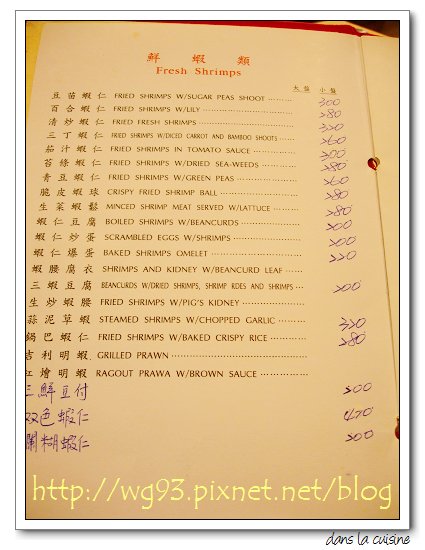 鮮蝦類
Fresh Shrimps
大盤 小盤
豆苗蝦仁 FRIED SHRIMPS W/SUGAR PEAS SHOOT ········· 300
百合蝦仁 FRIED SHRIMPS W/LILY ························· 280
清炒蝦仁 FRIED FRESH SHRIMPS ························· 320
三丁蝦仁 FRIED SHRIMPS W/DICED CARROT AND BAMBOO SHOOTS ······ 260
茄汁蝦仁 FRIED SHRIMPS IN TOMATO SAUCE ··········· 300
苔條蝦仁 FRIED SHRIMPS W/DRIED SEA-WEEDS ········ 280
青豆蝦仁 FRIED SHRIMPS W/GREEN PEAS ··············· 260
脆皮蝦球 CRISPY FRIED SHRIMP BALL ·················· 280
生菜蝦鬆 MINCED SHRIMP MEAT SERVED W/LATTUCE ········ 280
蝦仁豆腐 BOILED SHRIMPS W/BEANCURDS ·············· 200
蝦仁炒蛋 SCRAMBLED EGGS W/SHRIMPS ················· 200
蝦仁爆蛋 BAKED SHRIMPS OMELET ······················ 220
蝦腰腐衣 SHRIMPS AND KIDNEY W/BEANCURD LEAF ······
三蝦豆腐 BEANCURDS W/DRIED SHRIMPS, SHRIMP RDES AND SHRIMPS ··· 200
生炒蝦腰 FRIED SHRIMPS W/PIG'S KIDNEY ···············
蒜泥草蝦 STEAMED SHRIMPS W/CHOPPED GARLIC ········ 320
鍋巴蝦仁 FRIED SHRIMPS W/BAKED CRISPY RICE ········ 280
吉利明蝦 GRILLED PRAWN ·································
紅燴明蝦 RAGOUT PRAWA W/BROWN SAUCE ···············
三鮮豆付 200
双色蝦仁 420
蝦仁 200
http://wg93.pixnet.net/blog
dans la cuisine